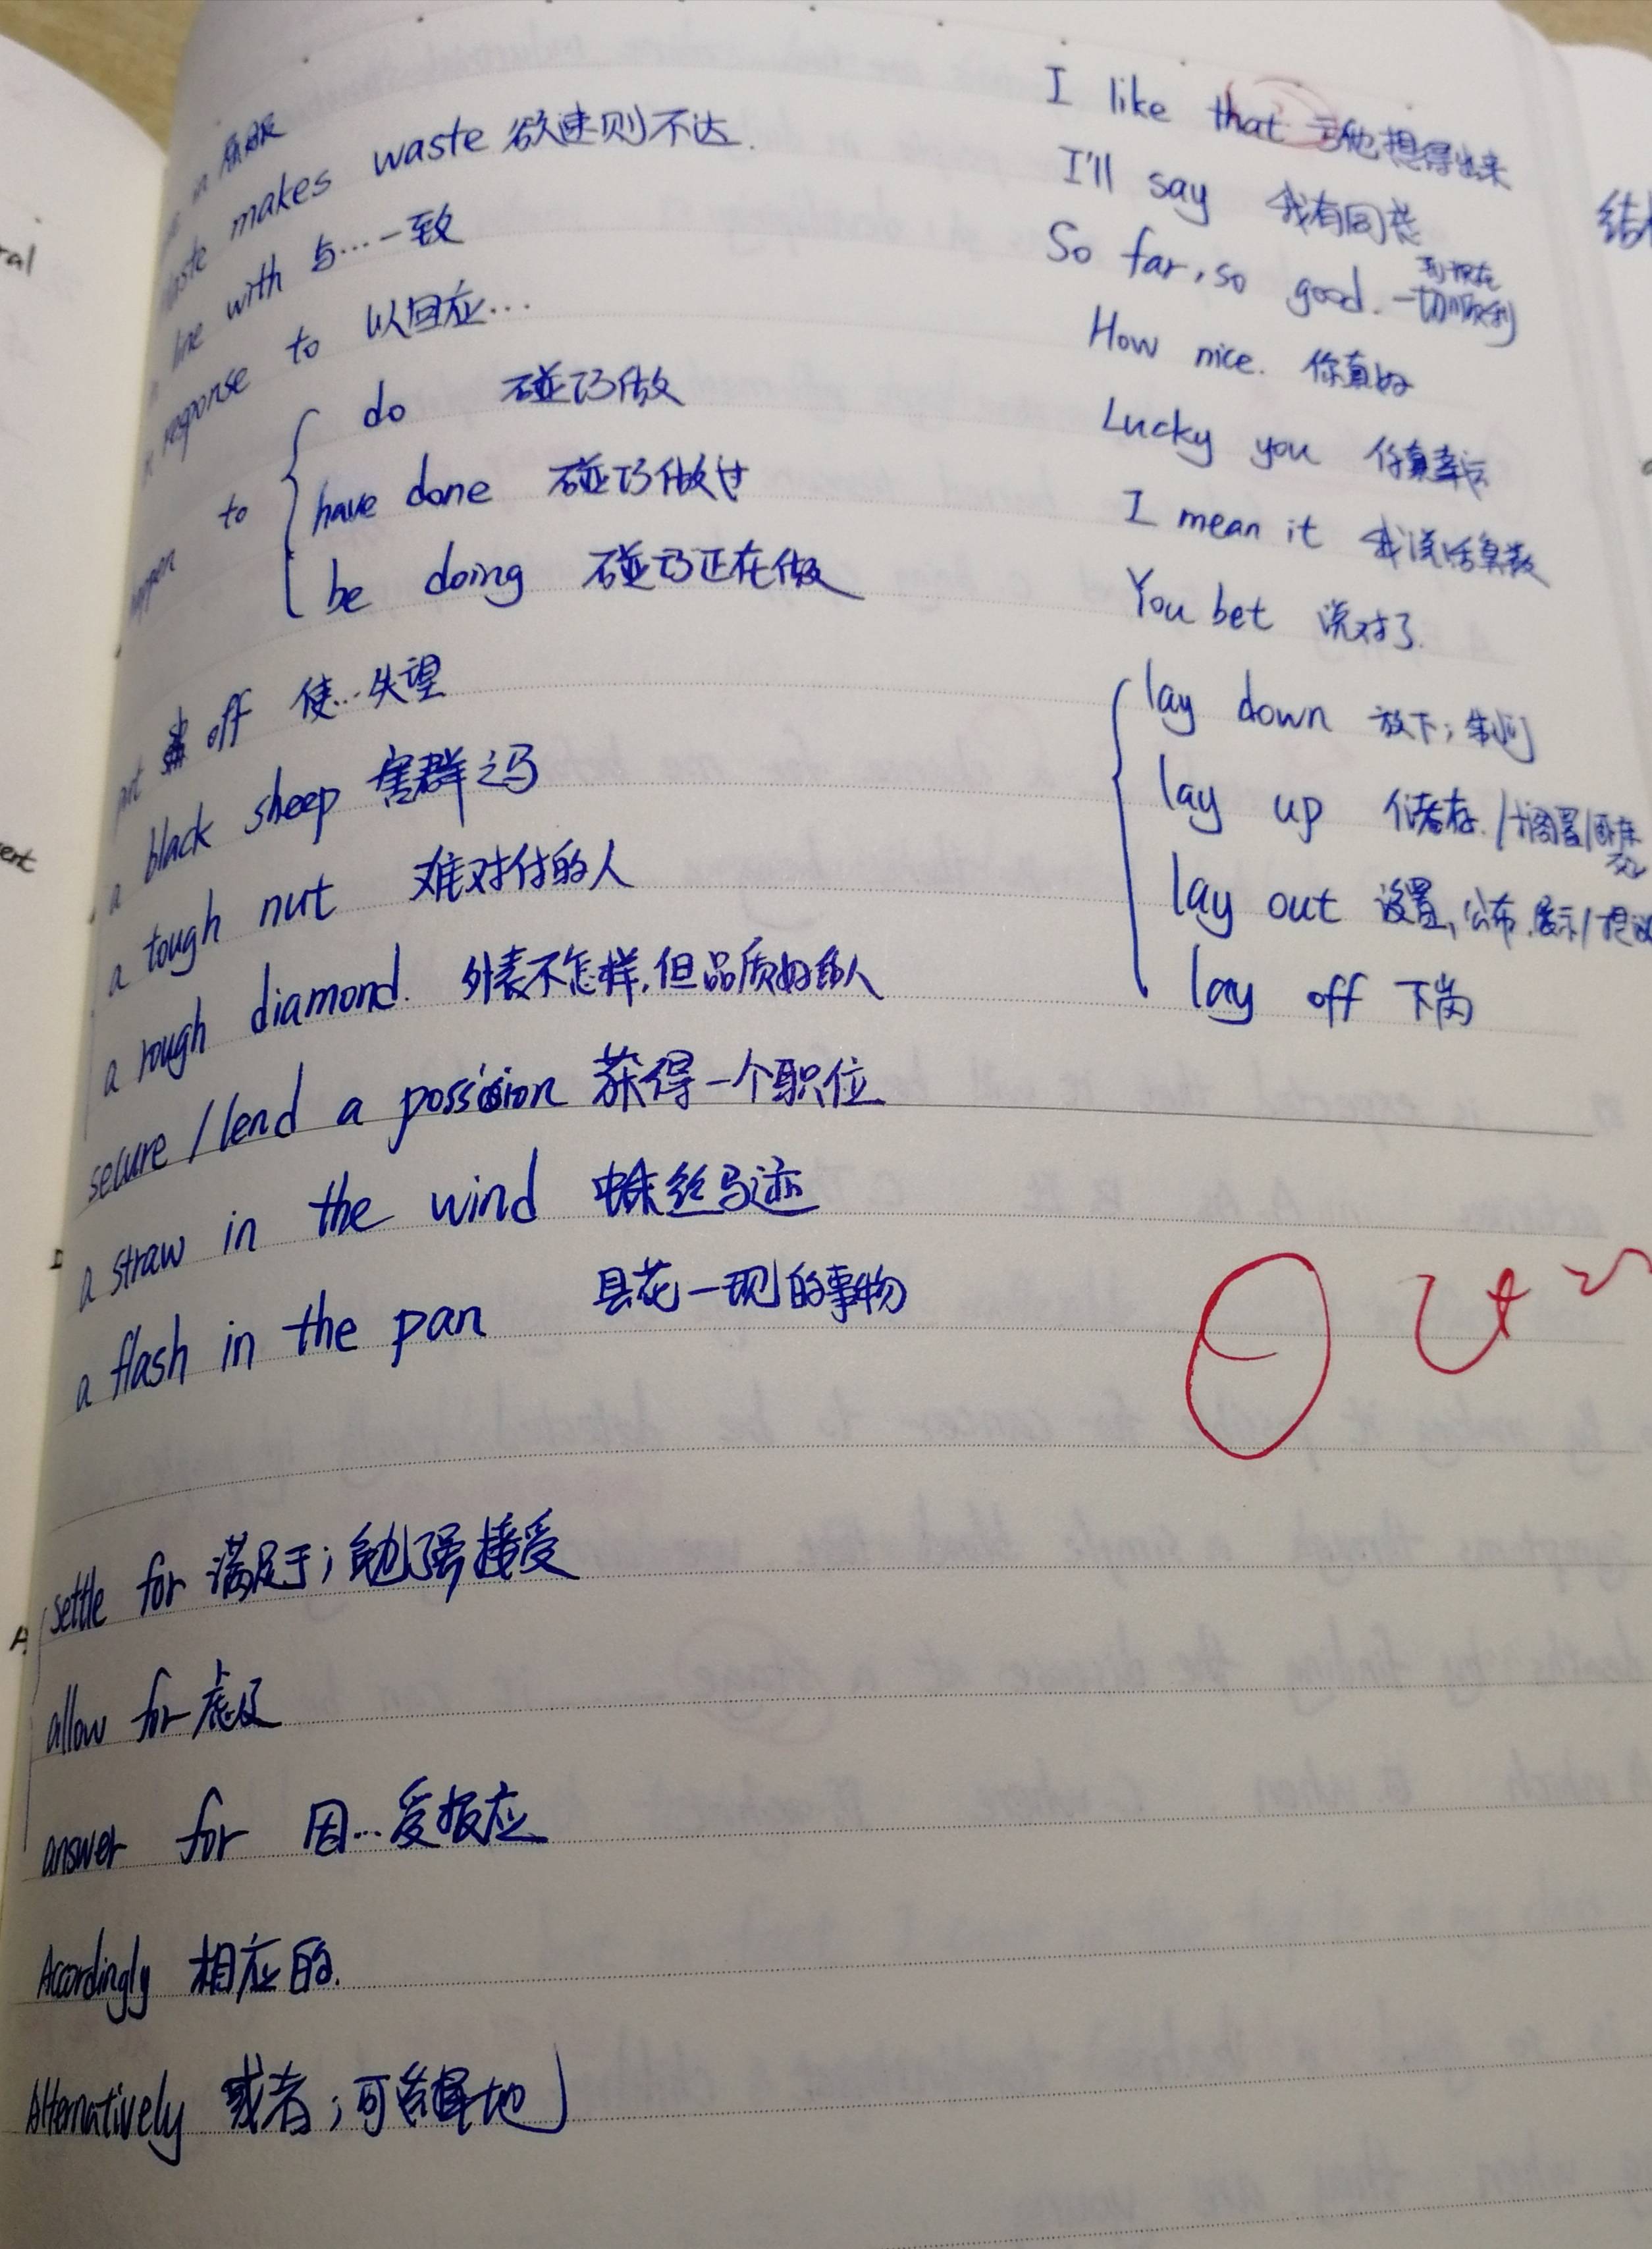 makes waste 欲速则不达.
line with 与…一致
response to 以回应…
to
do 碰巧做
have done 碰巧做过
be doing 碰巧正在做
off 使…失望
a black sheep 害群之马
a tough nut 难对付的人
a rough diamond. 外表不怎样,但品质好的人
secure / lend a possision 获得一个职位
a straw in the wind 蛛丝马迹
a flash in the pan 昙花一现的事物
settle for 满足于；勉强接受
allow for 虑及
answer for 因…受报应
Accordingly 相应的.
Alternatively 或者；可选择地
I like that 亏他想得出来
I'll say 我有同感
So far, so good. 到现在一切顺利
How nice. 你真好
Lucky you 你真幸运
I mean it 我说话算数
You bet 说对了.
lay down 放下；制订
lay up 储存. / 搁置 / 卧床
lay out 设置、公布、展示 / 提议
lay off 下岗